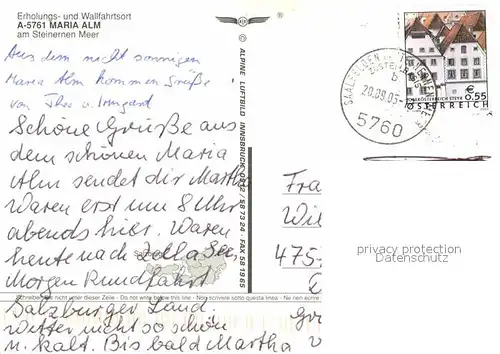 Erholungs- und Wallfahrtsort
A-5761 MARIA ALM
am Steinernen Meer
Aus dem nicht sonnigen
Maria Alm kommen Grüße
von Theo u. Irmgard
Schöne Grüße aus
dem schönen Maria
Alm sendet dir Martha
Waren erst um 8 Uhr
abends hier. Waren
heute nach Zell a See
Morgen Rundfahrt
Schreiben Sie nicht unter dieser Zeile - Do not write below this line - Non scrivere sotto questa linea
Salzburger Land.
Wetter nicht so schön
u. kalt. Bis bald Martha
© ALPINE LUFTBILD INNSBRUCK 0512 / 58 73 24 - FAX 58 19 85
20.09.05
5760
€ 0,55
ÖSTERREICH
Fra
Wi
475-
privacy protection
Datenschutz